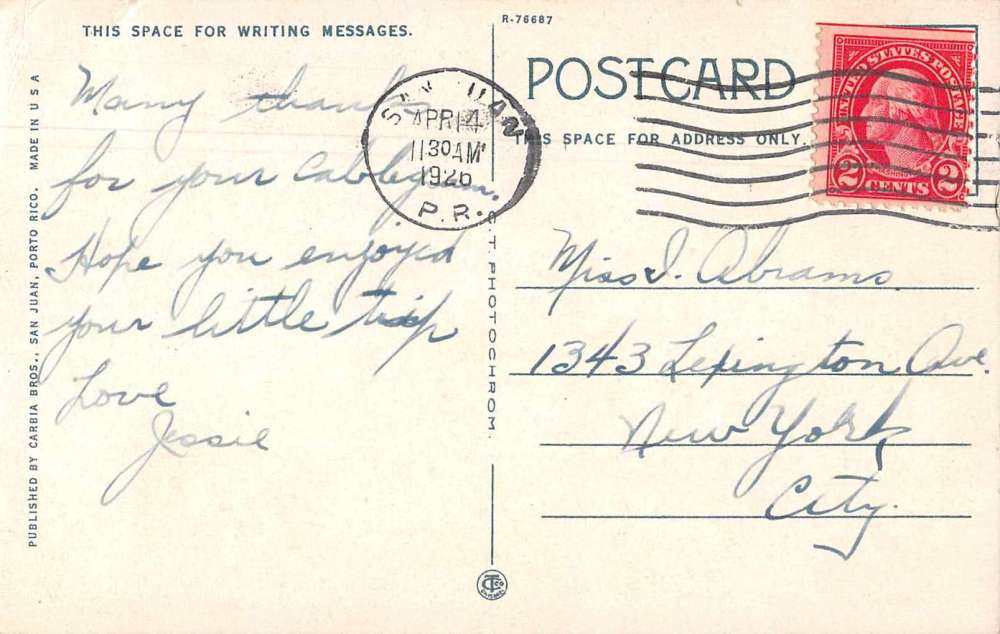 THIS SPACE FOR WRITING MESSAGES.
Many thanks
for your Cablegram.
Hope you enjoyed
your little trip
Love
Jessie
PUBLISHED BY CARBIA BROS., SAN JUAN, PORTO RICO. MADE IN U S A
C.T. PHOTOCHROM.
R-76687
POSTCARD
THIS SPACE FOR ADDRESS ONLY.
SAN JUAN
APR 14
11 30 AM
1926
P.R.
UNITED STATES POSTAGE
2 CENTS 2
Miss I. Abrams
1343 Lexington Ave.
New York
City.